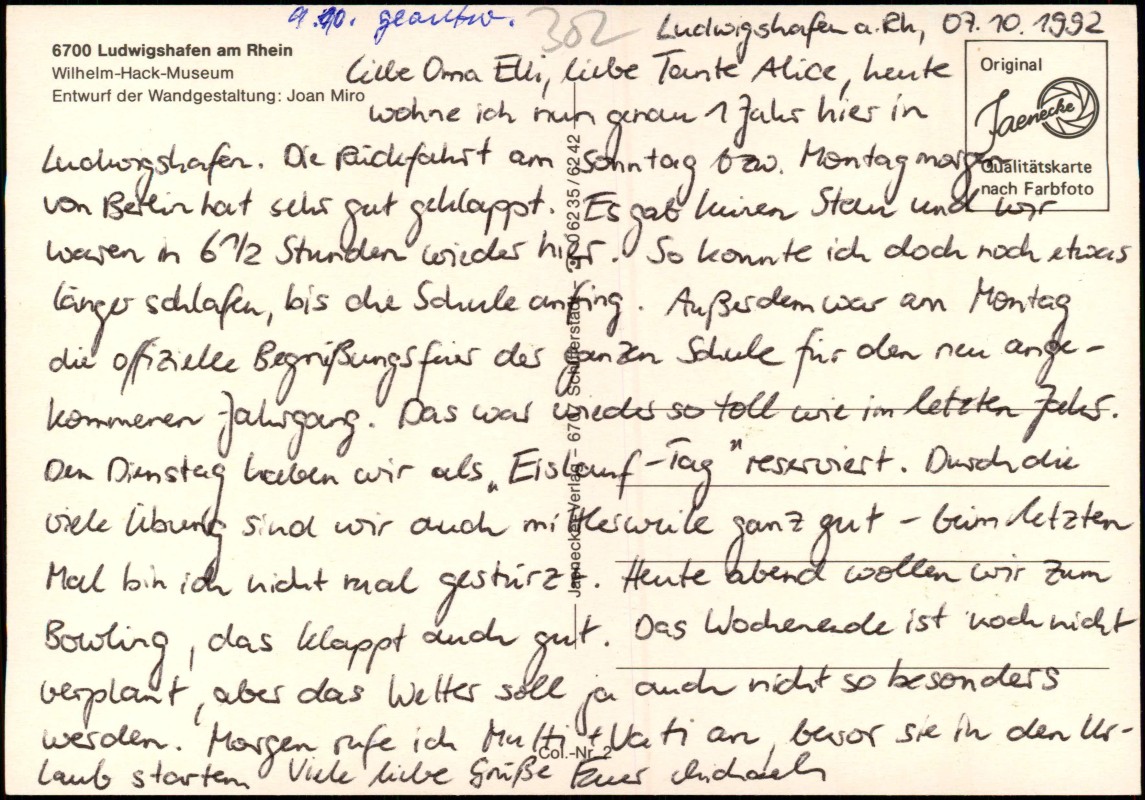 9.10. geantw.
302
Ludwigshafen a. Rh, 07.10.1992
6700 Ludwigshafen am Rhein
Wilhelm-Hack-Museum
Entwurf der Wandgestaltung: Joan Miro
Original
Jaenecke
Qualitätskarte
nach Farbfoto
Liebe Oma Elli, liebe Tante Alice, heute
wohne ich nun genau 1 Jahr hier in
Ludwigshafen. Die Rückfahrt am Sonntag bzw. Montagmorgen
von Berlin hat sehr gut geklappt. Es gab keinen Stau und wir
waren in 6 1/2 Stunden wieder hier. So konnte ich doch noch etwas
länger schlafen, bis die Schule anfing. Außerdem war am Montag
die offizielle Begrüßungsfeier der ganzen Schule für den neu ange-
kommenen Jahrgang. Das war wieder so toll wie im letzten Jahr.
Den Dienstag haben wir als „Eislauf-Tag" reserviert. Durch die
viele Übung sind wir auch mittlerweile ganz gut – beim letzten
Mal bin ich nicht mal gestürzt. Heute abend wollen wir zum
Bowling, das klappt auch gut. Das Wochenende ist noch nicht
verplant, aber das Wetter soll ja auch nicht so besonders
werden. Morgen rufe ich Mutti + Vati an, bevor sie in den Ur-
laub starten. Viele liebe Grüße Euer Michael
Jaenecke-Verlag – 6707 Schifferstadt 06235/6242
Col.-Nr. 2